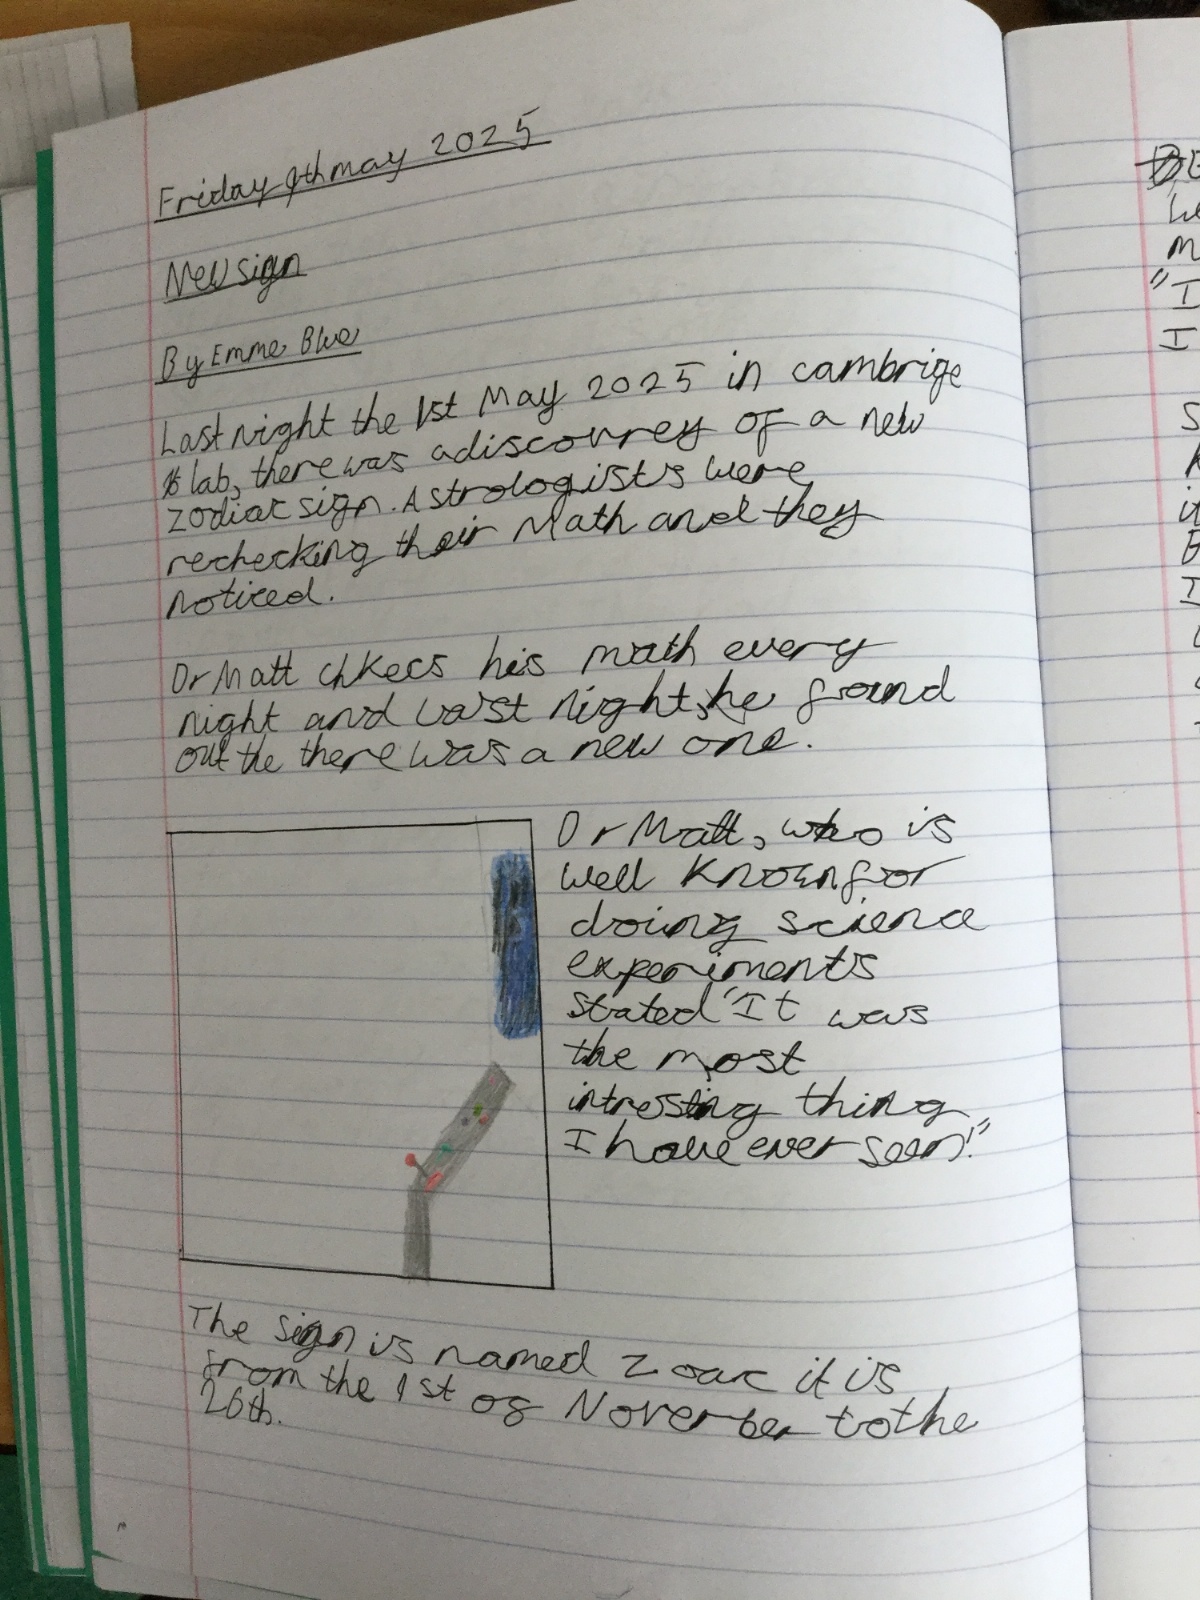 Friday 9th may 2025
New sign
By Emme Blue
Last night the 1st May 2025 in cambrige
lab, there was a discovrey of a new
zodiac sign. Astrologists were
rechecking their Math and they
noticed.
Dr Matt chkecs his math every
night and last night, he found
out the there was a new one.
Dr Matt, who is
well known for
doing science
experiments
stated "It was
the most
intresting thing
I have ever seen!"
The sign is named Zoac it is
from the 1st of November to the
26th.
BE
m
"I
I
S
I